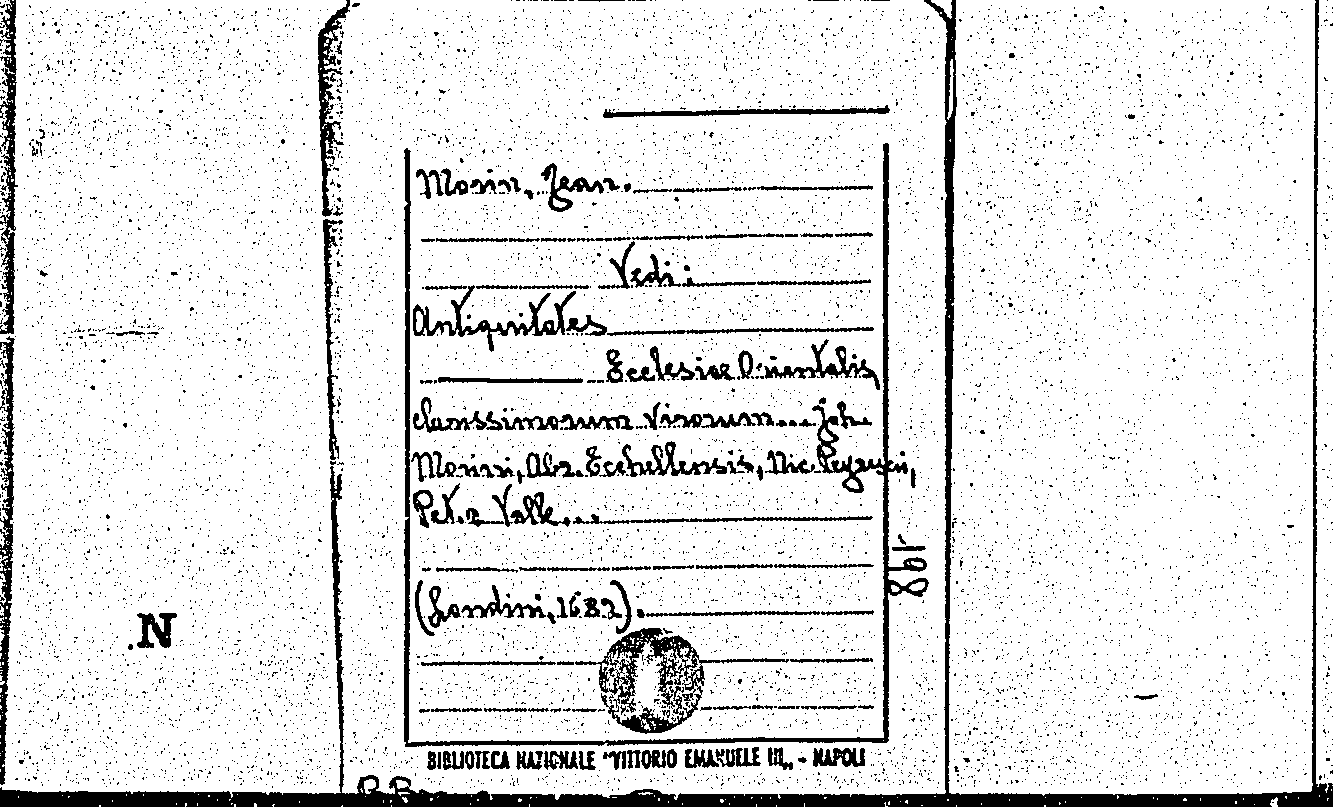 Morin, Jean.
Vedi:
Antiquitates
Ecclesiae Orientalis,
clarissimorum virorum... Joh.
Morini, Abr. Ecchellensis, Nic. Peyrescii,
Petr. Valle...
(Londini, 1682).
BIBLIOTECA NAZIONALE "VITTORIO EMANUELE III„ - NAPOLI
.N